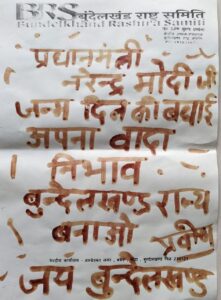 BRS बुंदेलखंड राष्ट्र समिति
Bundelkhand Rashtra Samiti
प्रधानमंत्री
नरेन्द्र मोदी जी
जन्म दिन की बधाई
अपना वादा
निभाव
बुन्देलखण्ड राज्य
बनाओ प्रवीण
जय बुन्देलखण्ड